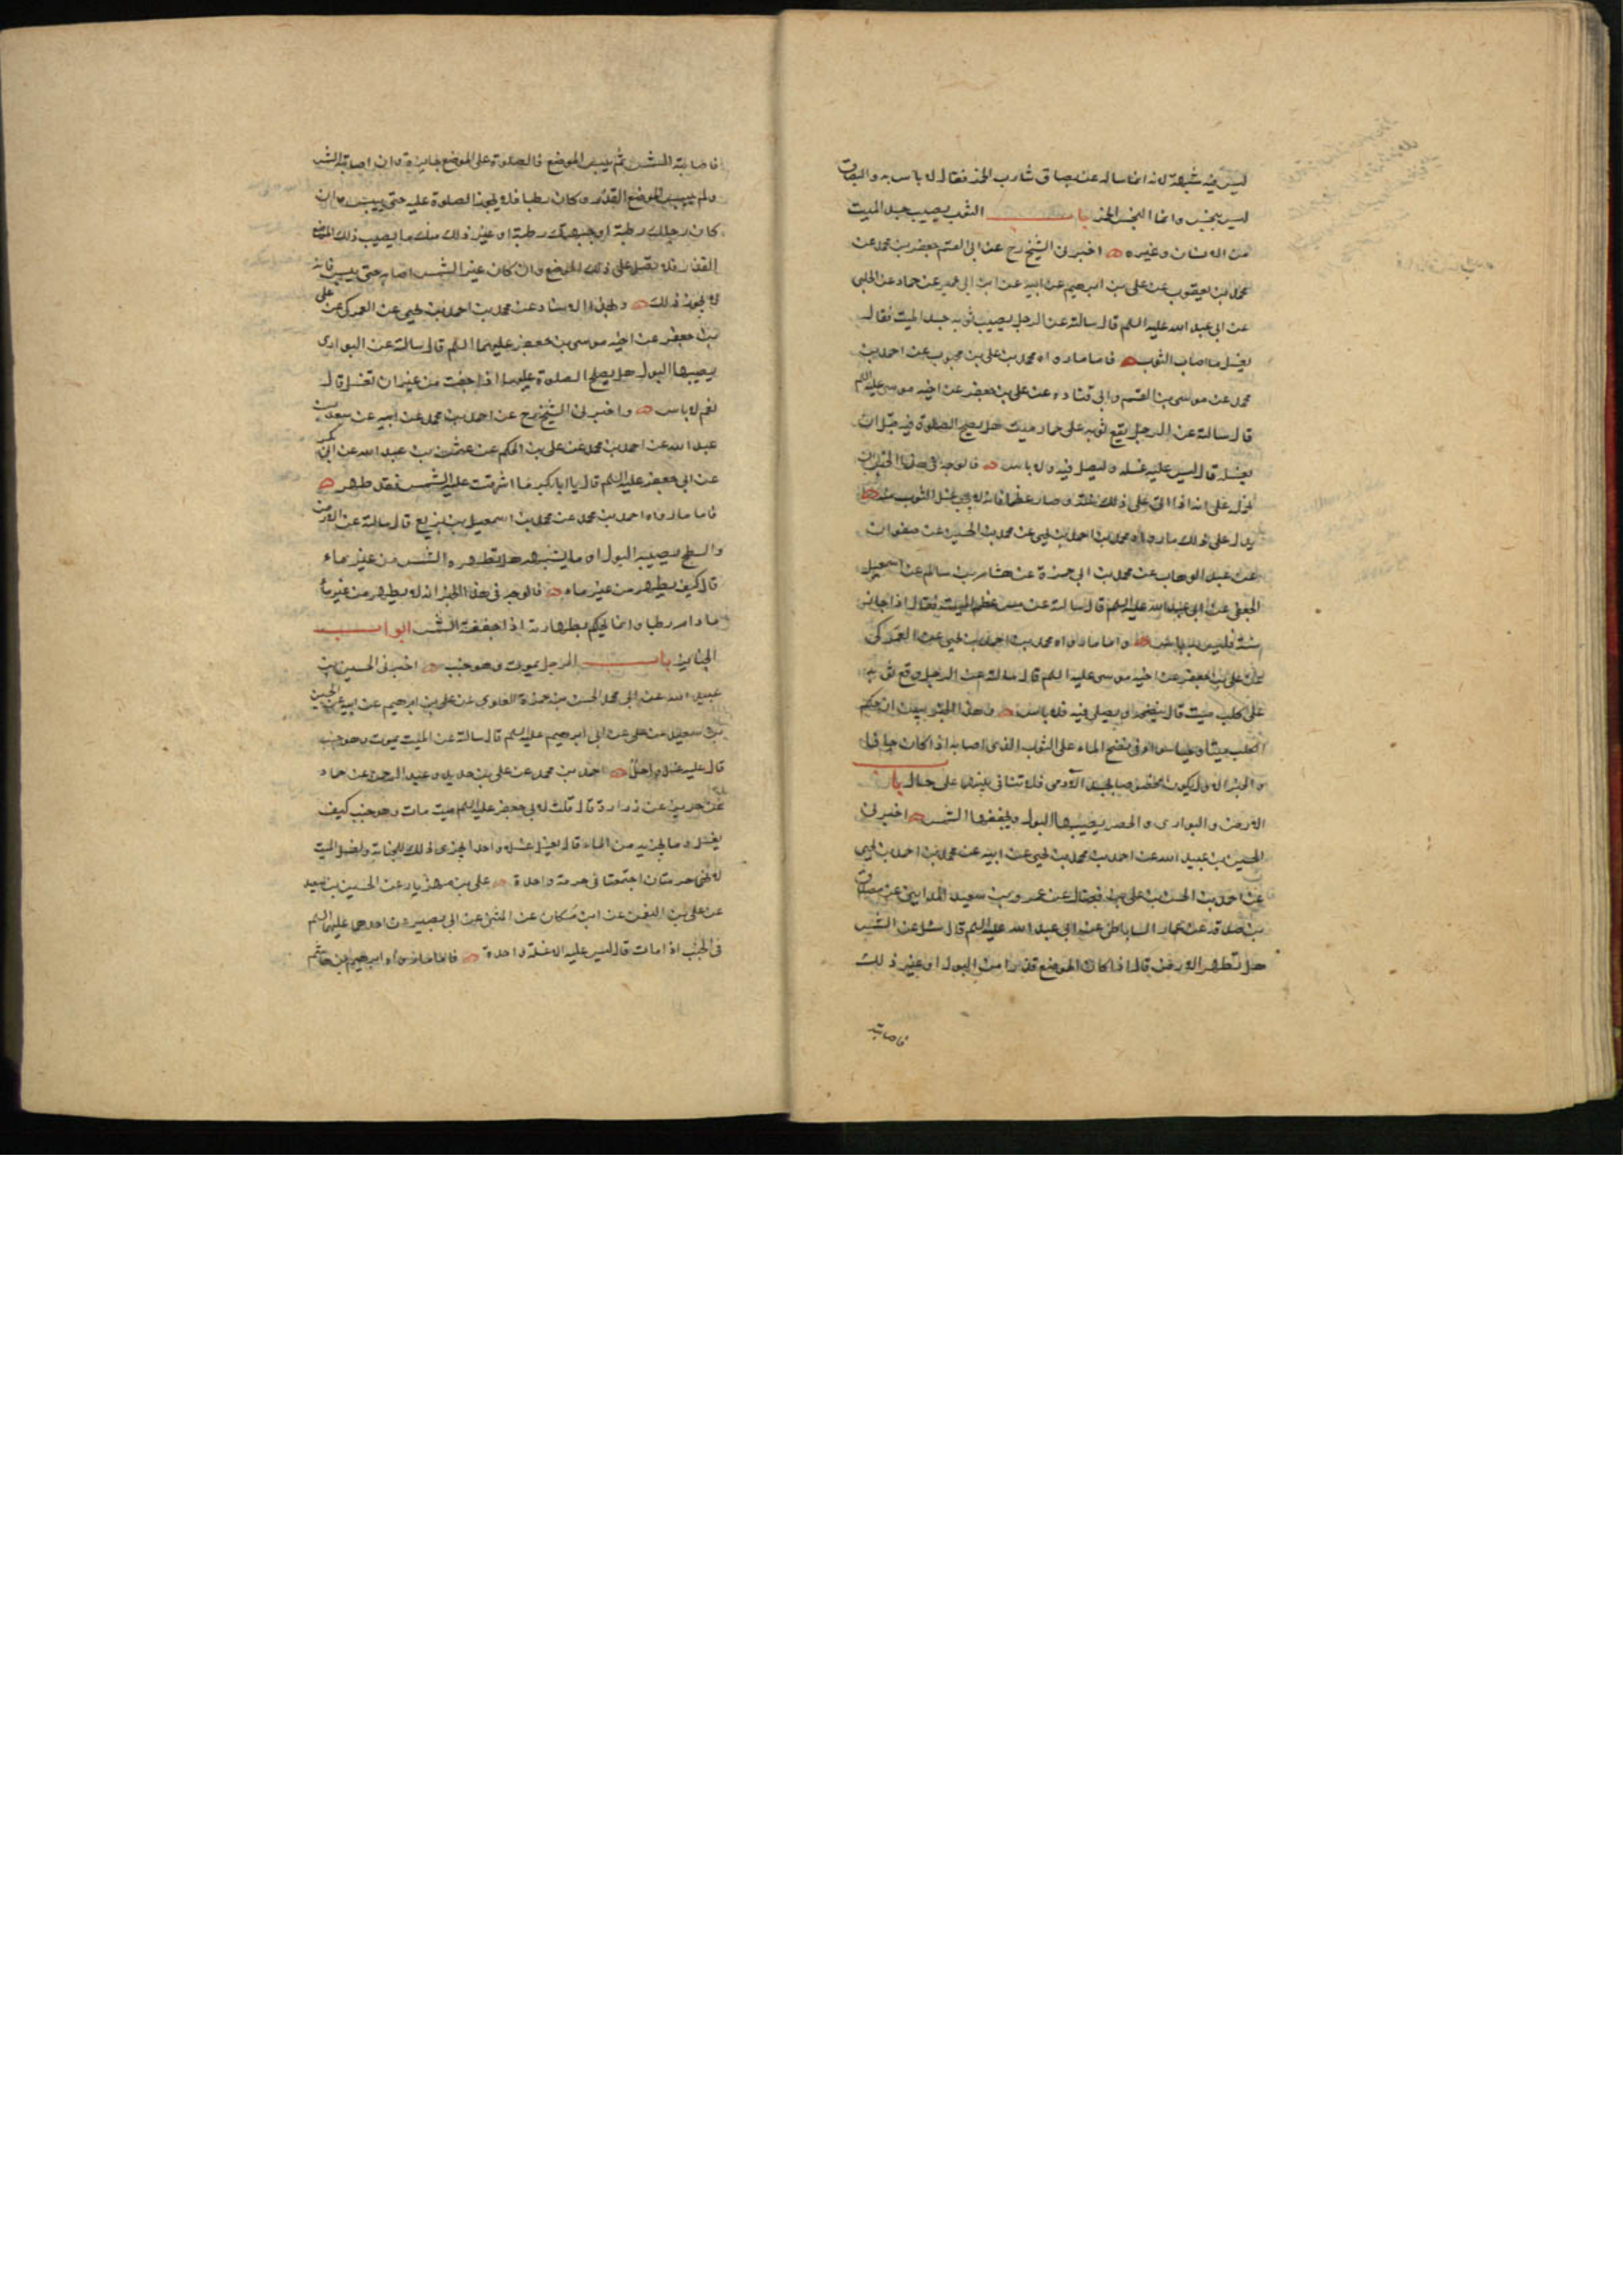 ليس فيه شبهة لانه انما ساله عن بصاق شارب الخمر فقال لا باس به والبصاق
ليس بنجس وانما النجس الخمر باب الثوب يصيب جسد الميت
من الانسان وغيره اخبرنى الشيخ رح عن ابى القسم جعفر بن محمد عن
محمد بن يعقوب عن على بن ابرهيم عن ابيه عن ابن ابى عمير عن حماد عن الحلبى
عن ابى عبد الله عليه السلم قال سالته عن الرجل يصيب ثوبه جسد الميت فقال
يغسل ما اصاب الثوب فاما ما رواه محمد بن على بن محبوب عن احمد بن
محمد عن موسى بن القسم وابى قتادة عن على بن جعفر عن اخيه موسى عليه السلم
قال سالته عن الرجل يقع ثوبه على حمار ميت هل يصلح الصلوة فيه قبل ان
يغسله قال ليس عليه غسله وليصل فيه ولا باس فالوجه فى هذا الخبر ان
نحمله على انه اذا اتى على ذلك سنة وصار عظما فانه لا يجب غسل الثوب منه
يدل على ذلك ما رواه محمد بن احمد بن يحيى عن محمد بن الحسين عن صفوان
عن عبد الوهاب عن محمد بن ابى حمزة عن هشام بن سالم عن اسمعيل
الجعفى عن ابى عبد الله عليه السلم قال سالته عن مس عظم الميت فقال اذا جاز
سنة فليس به باس واما ما رواه محمد بن احمد بن يحيى عن العمركى
عن على بن جعفر عن اخيه موسى عليه السلم قال سالته عن الرجل وقع ثوبه
على كلب ميت قال ينضحه ويصلى فيه فلا باس وهذا الخبر
الكلب ميتا وحيا سواء فى نضح الماء على الثوب الذى اصابه اذا كان جافا
والخبر الاول يكون مختصا بجسد الآدمى فلا تنافى بينهما على حال باب
الارض والبوارى والحصر يصيبها البول ويجففها الشمس اخبرنى
الحسين بن عبيد الله عن احمد بن محمد بن يحيى عن ابيه عن محمد بن احمد بن يحيى
عن احمد بن الحسن بن على بن فضال عن عمرو بن سعيد المداينى عن مصدق
بن صدقة عن عمار الساباطى عن ابى عبد الله عليه السلم قال سئل عن الشمس
هل تطهر الارض قال اذا كان الموضع قذرا من البول او غير ذلك
فاصابته
فاصابته الشمس ثم يبس الموضع فالصلوة على الموضع جايزة وان اصابته الشمس
ولم ييبس الموضع القذر وكان رطبا فلا يجوز الصلوة عليه حتى ييبس وان
كان رجلك رطبة او جبهتك رطبة او غير ذلك منك ما يصيب ذلك الموضع
القذر فلا تصل على ذلك الموضع وان كان عين الشمس اصابه حتى ييبس فانه
لا يجوز ذلك وبهذا الاسناد عن محمد بن احمد بن يحيى عن العمركى عن على
بن جعفر عن اخيه موسى بن جعفر عليهما السلم قال سالته عن البوارى
يصيبها البول هل يصلح الصلوة عليها اذا جفت من غير ان تغسل قال
نعم لا باس واخبرنى الشيخ رح عن احمد بن محمد عن ابيه عن سعد بن
عبد الله عن احمد بن محمد عن على بن الحكم عن عثمن بن عبد الله عن ابى بكر
عن ابى جعفر عليه السلم قال يا ابا بكر ما اشرقت عليه الشمس فقد طهر
فاما ما رواه احمد بن محمد عن محمد بن اسمعيل بن بزيع قال سالته عن الارض
والسطح يصيبه البول او ما يشبهه هل تطهره الشمس من غير ماء
قال كيف يطهر من غير ماء فالوجه فى هذا الخبر انه لا يطهر من غير ماء
ما دام رطبا وانما يحكم بطهارته اذا جففته الشمس ابواب
الجنايز باب الرجل يموت وهو جنب اخبرنى الحسين بن
عبيد الله عن ابى محمد الحسن بن حمزة العلوى عن على بن ابرهيم عن ابيه عن الحسين
بن سعيد عن على عن ابى ابرهيم عليه السلم قال سالته عن الميت يموت وهو جنب
قال عليه غسل واحد احمد بن محمد عن على بن حديد وعبد الرحمن عن حماد
عن حريز عن زرارة قال قلت لابى جعفر عليه السلم ميت مات وهو جنب كيف
يغسل وما يجزيه من الماء قال يغسل غسلا واحدا يجزى ذلك للجنابة ولغسل الميت
لانهما حرمتان اجتمعتا فى حرمة واحدة على بن مهزيار عن الحسين بن سعيد
عن على بن النعمن عن ابن مسكان عن المثنى عن ابى بصير عن احدهما عليهما السلم
فى الجنب اذا مات قال ليس عليه الا غسلة واحدة فاما ما رواه ابرهيم بن هاشم